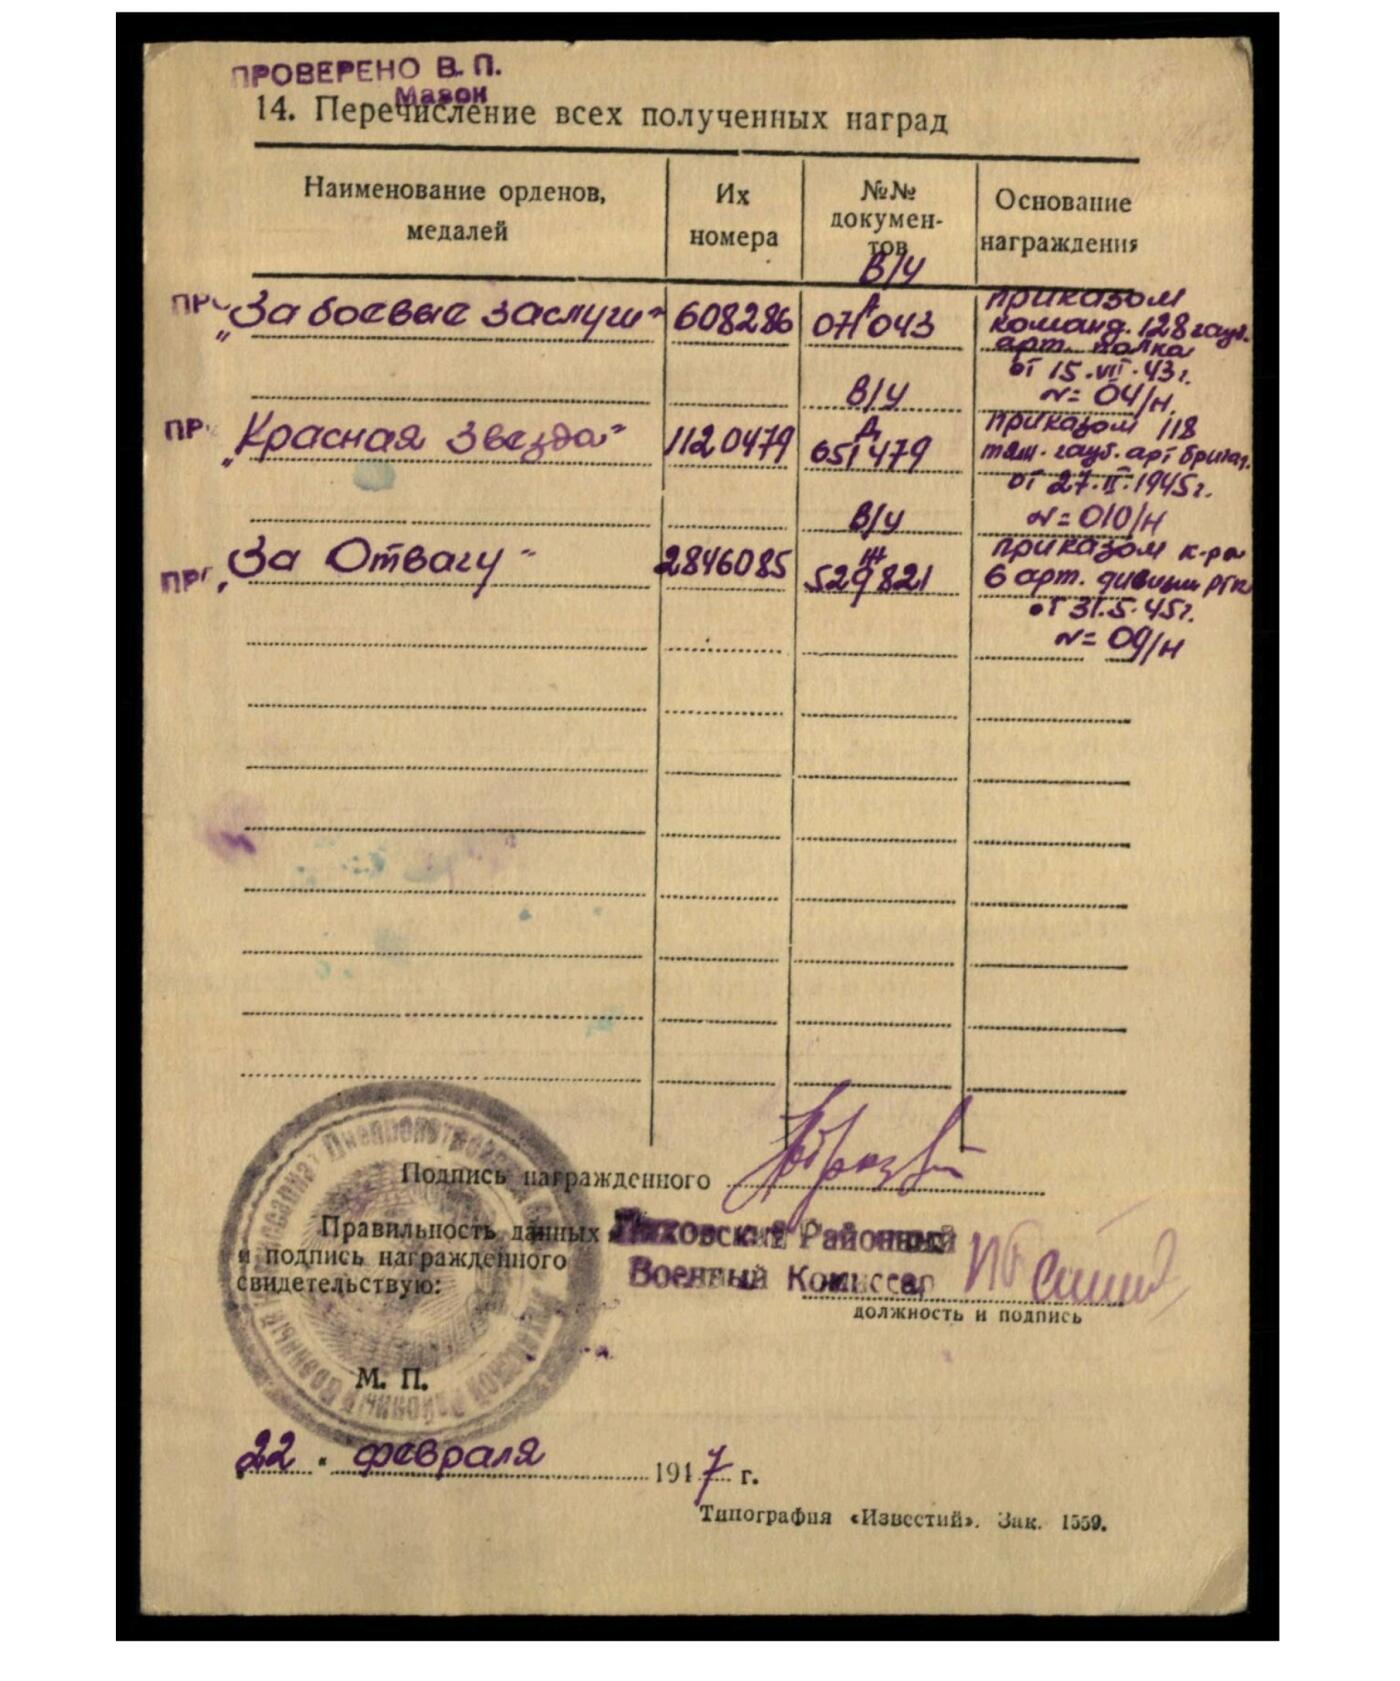 ПРОВЕРЕНО В. П.
Мазок
14. Перечисление всех полученных наград
Наименование орденов,
медалей
Их
номера
№№
докумен-
тов
Основание
награждения
ПРО „За боевые заслуги“ 608286
В/у
А
071043
приказом
команд. 128 гауб.
арт. полка
от 15.VII.43г.
N= 04/н.
ПР „Красная Звезда“ 1120479
В/у
Д
651479
приказом 118
тяж. гауб. арт бригад.
от 27.II.1945г.
N= 010/н
ПРО „За Отвагу“ 2846085
В/у
Ж
529821
приказом к-ра
6 арт. дивизии РГК
от 31.5.45г.
N= 09/н
Подпись награжденного
Правильность данных
и подпись награжденного
свидетельствую:
Районный
Военный Комиссар
должность и подпись
М. П.
22 . февраля 1947 г.
Типография «Известий». Зак. 1559.